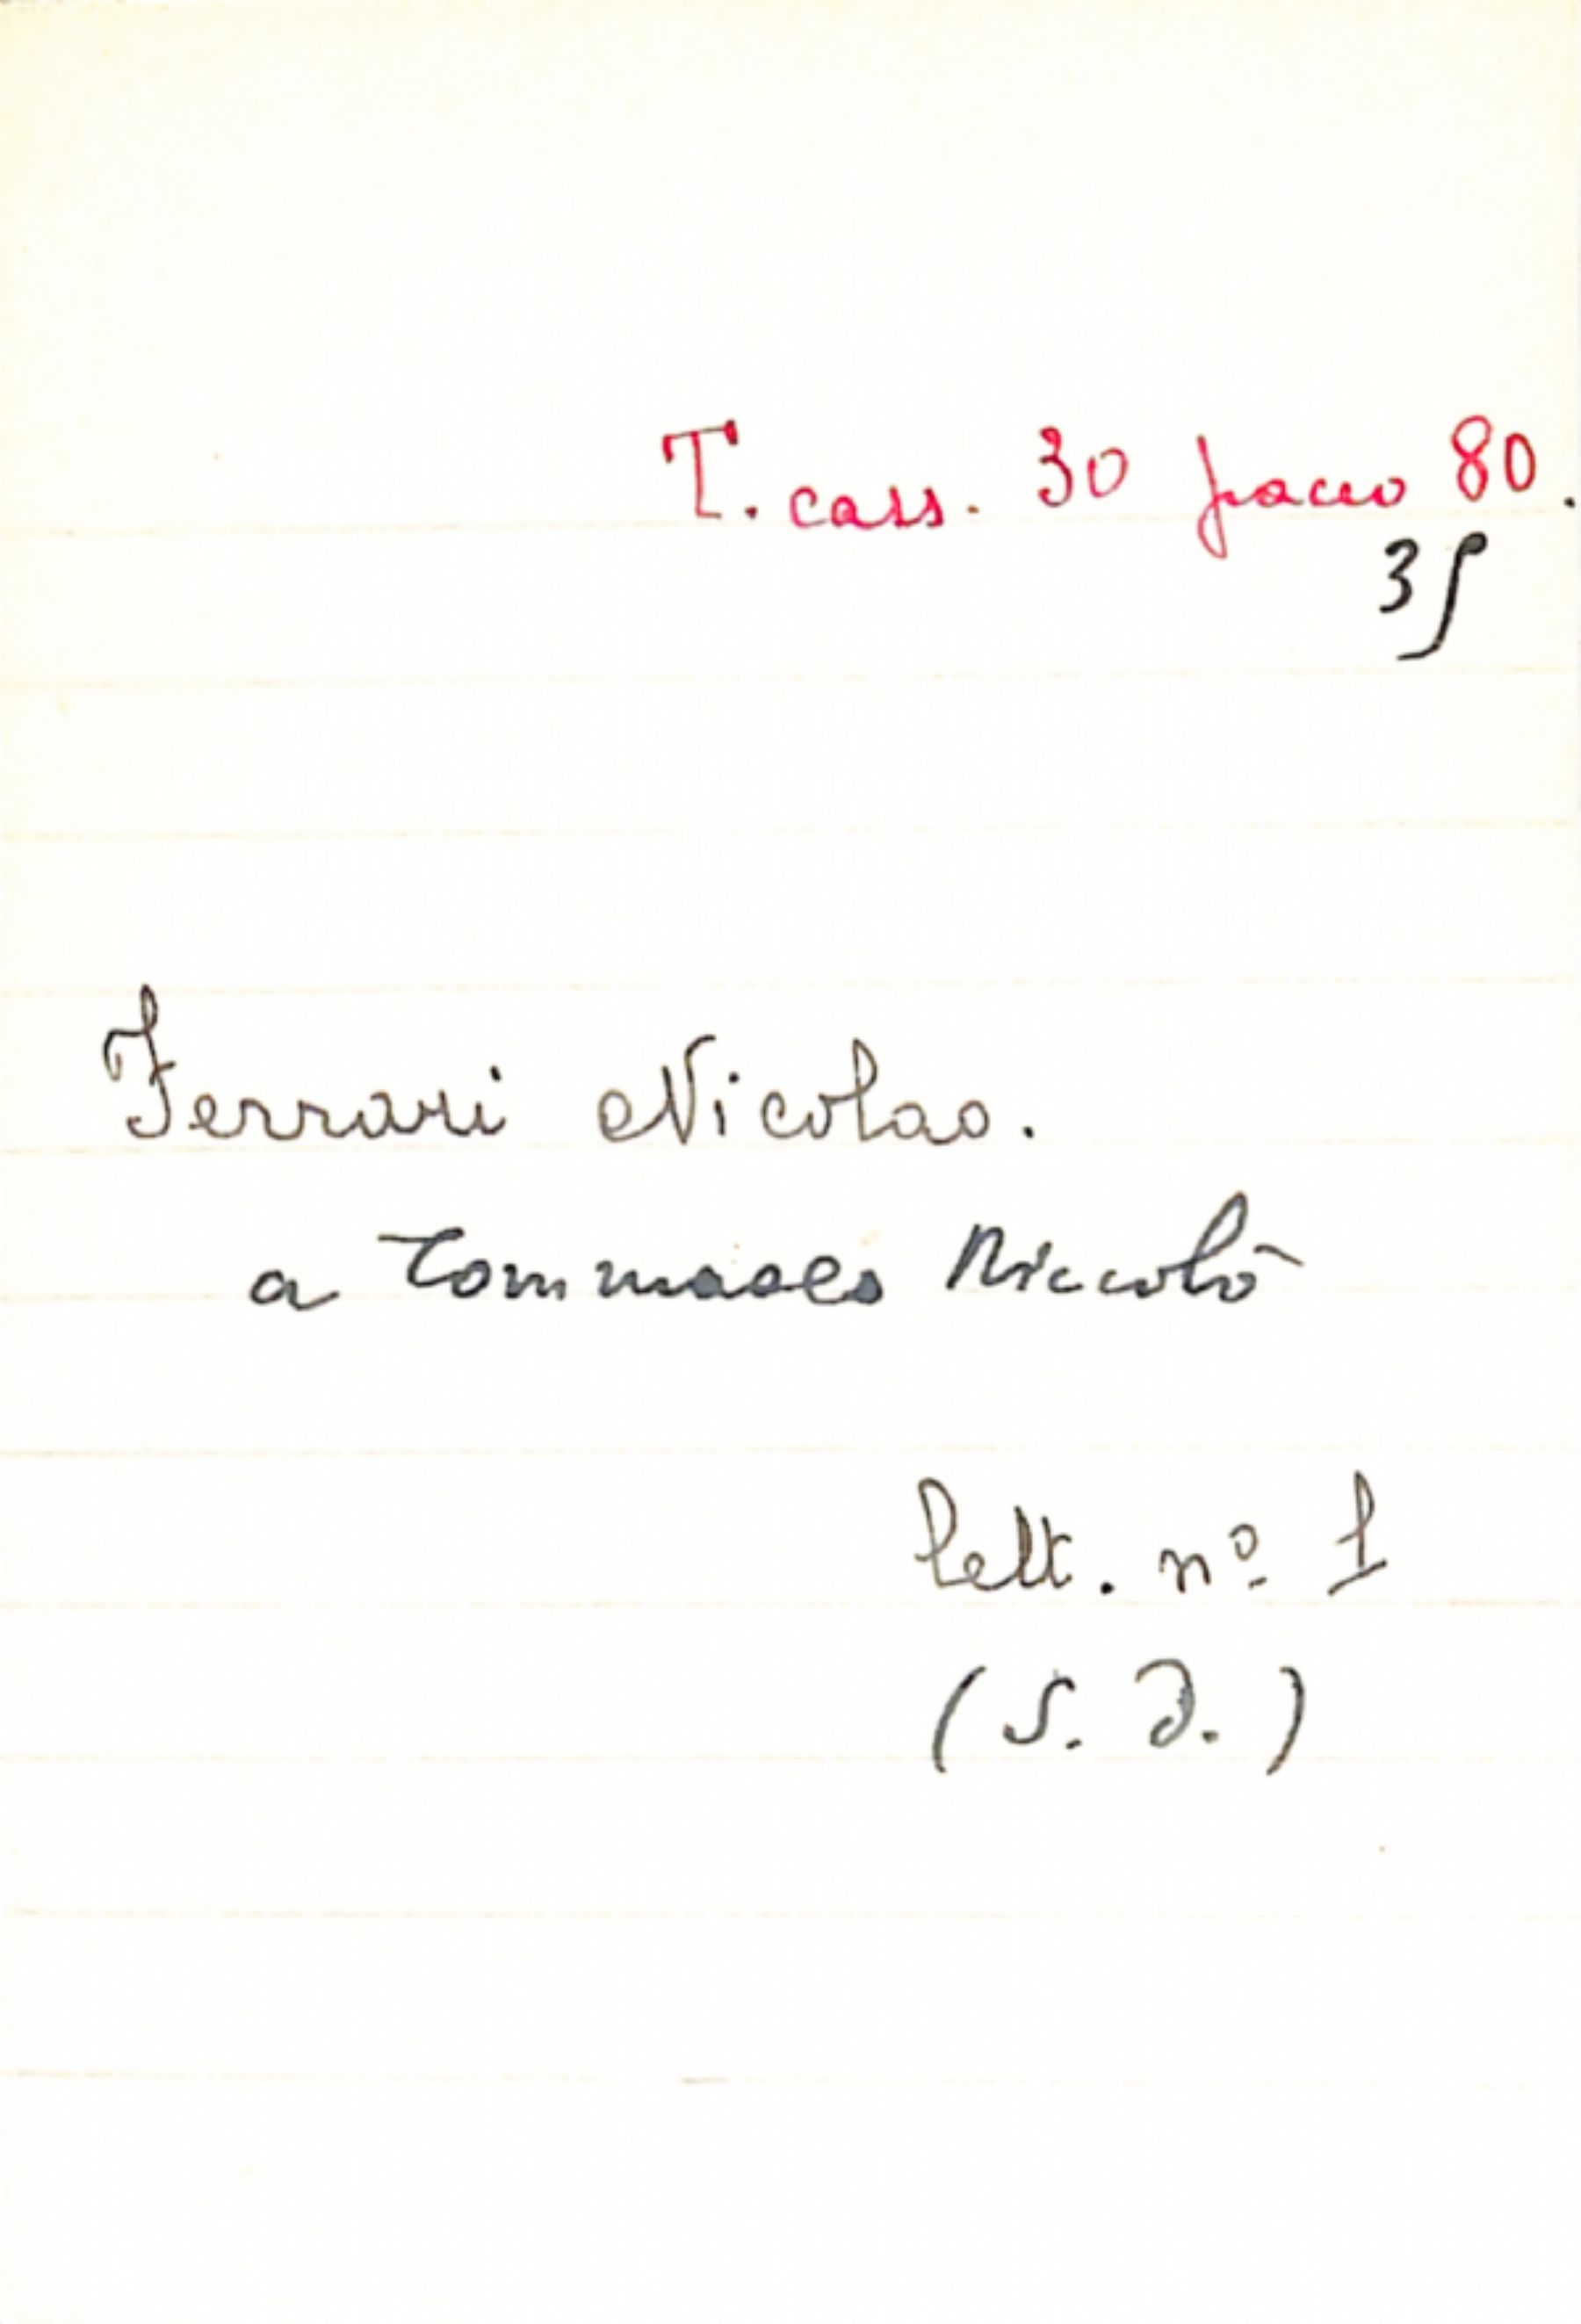 T. cass. 30 pacco 80.
35
Ferrari Nicolao.
a Tommaseo Niccolò
lett. nº 1
(S. D.)